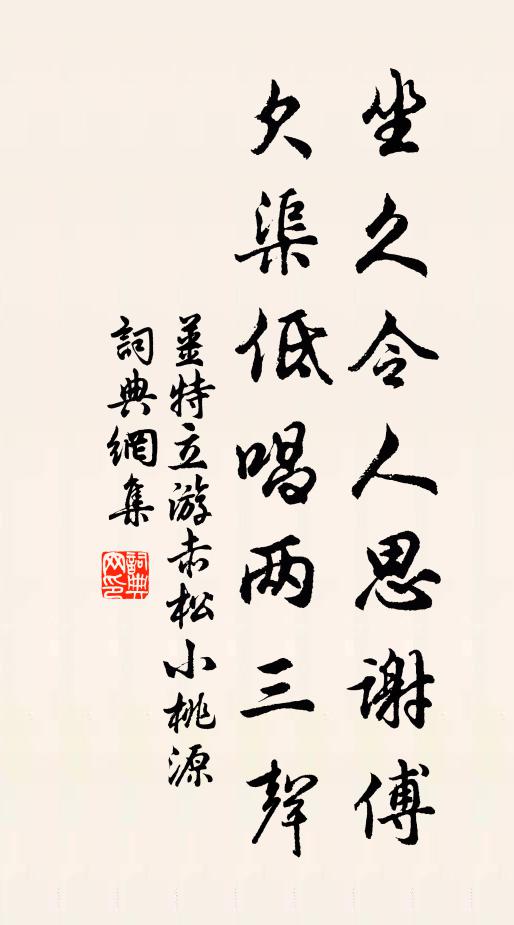 坐久令人思谢傅
欠渠低唱两三聲
姜特立游赤松小桃源
詞典網集
詞典
网印